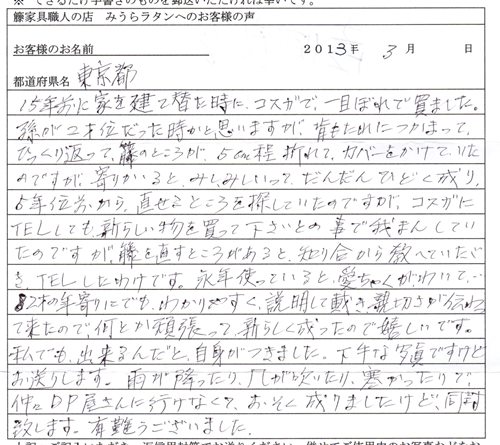 ※ できるだけ手書きのものを郵送いただければ幸いです。
籐家具職人の店 みうらラタンへのお客様の声
お客様のお名前 2013年 3月 日
都道府県名 東京都
15年前に家を建て替た時に、コスガで、一目ぼれで買ました。
孫が2才位だった時かと思いますが、背もたれにつかまって、
ひっくり返って、籐のところが、5cm程折れて、カバーをかけていた
のですが、寄りかいると、みしみしいって、だんだんひどく成り、
5年位前から、直せるところを探していたのですが、コスガに
TELしても、新らしい物を買って下さいとの事で我まんしてい
たのですが、籐を直すところがあると、知り合から教へていただ
き、TELしたわけです。永年使っていると、愛ちゃくがわいて、
82才の年寄りにでも、わかりやすく、説明して戴き、親切さが伝わっ
て来たので、何とか頑張って、新らしく成ったので嬉しいです。
私でも、出来るんだと、自身がつきました。下手な写真ですけど
お送りします。雨が降ったり、風が吹いたり、寒かったりで、
仲々DP屋さんに行けなくて、おそく成りましたけど、同封
致します。有難うございました。